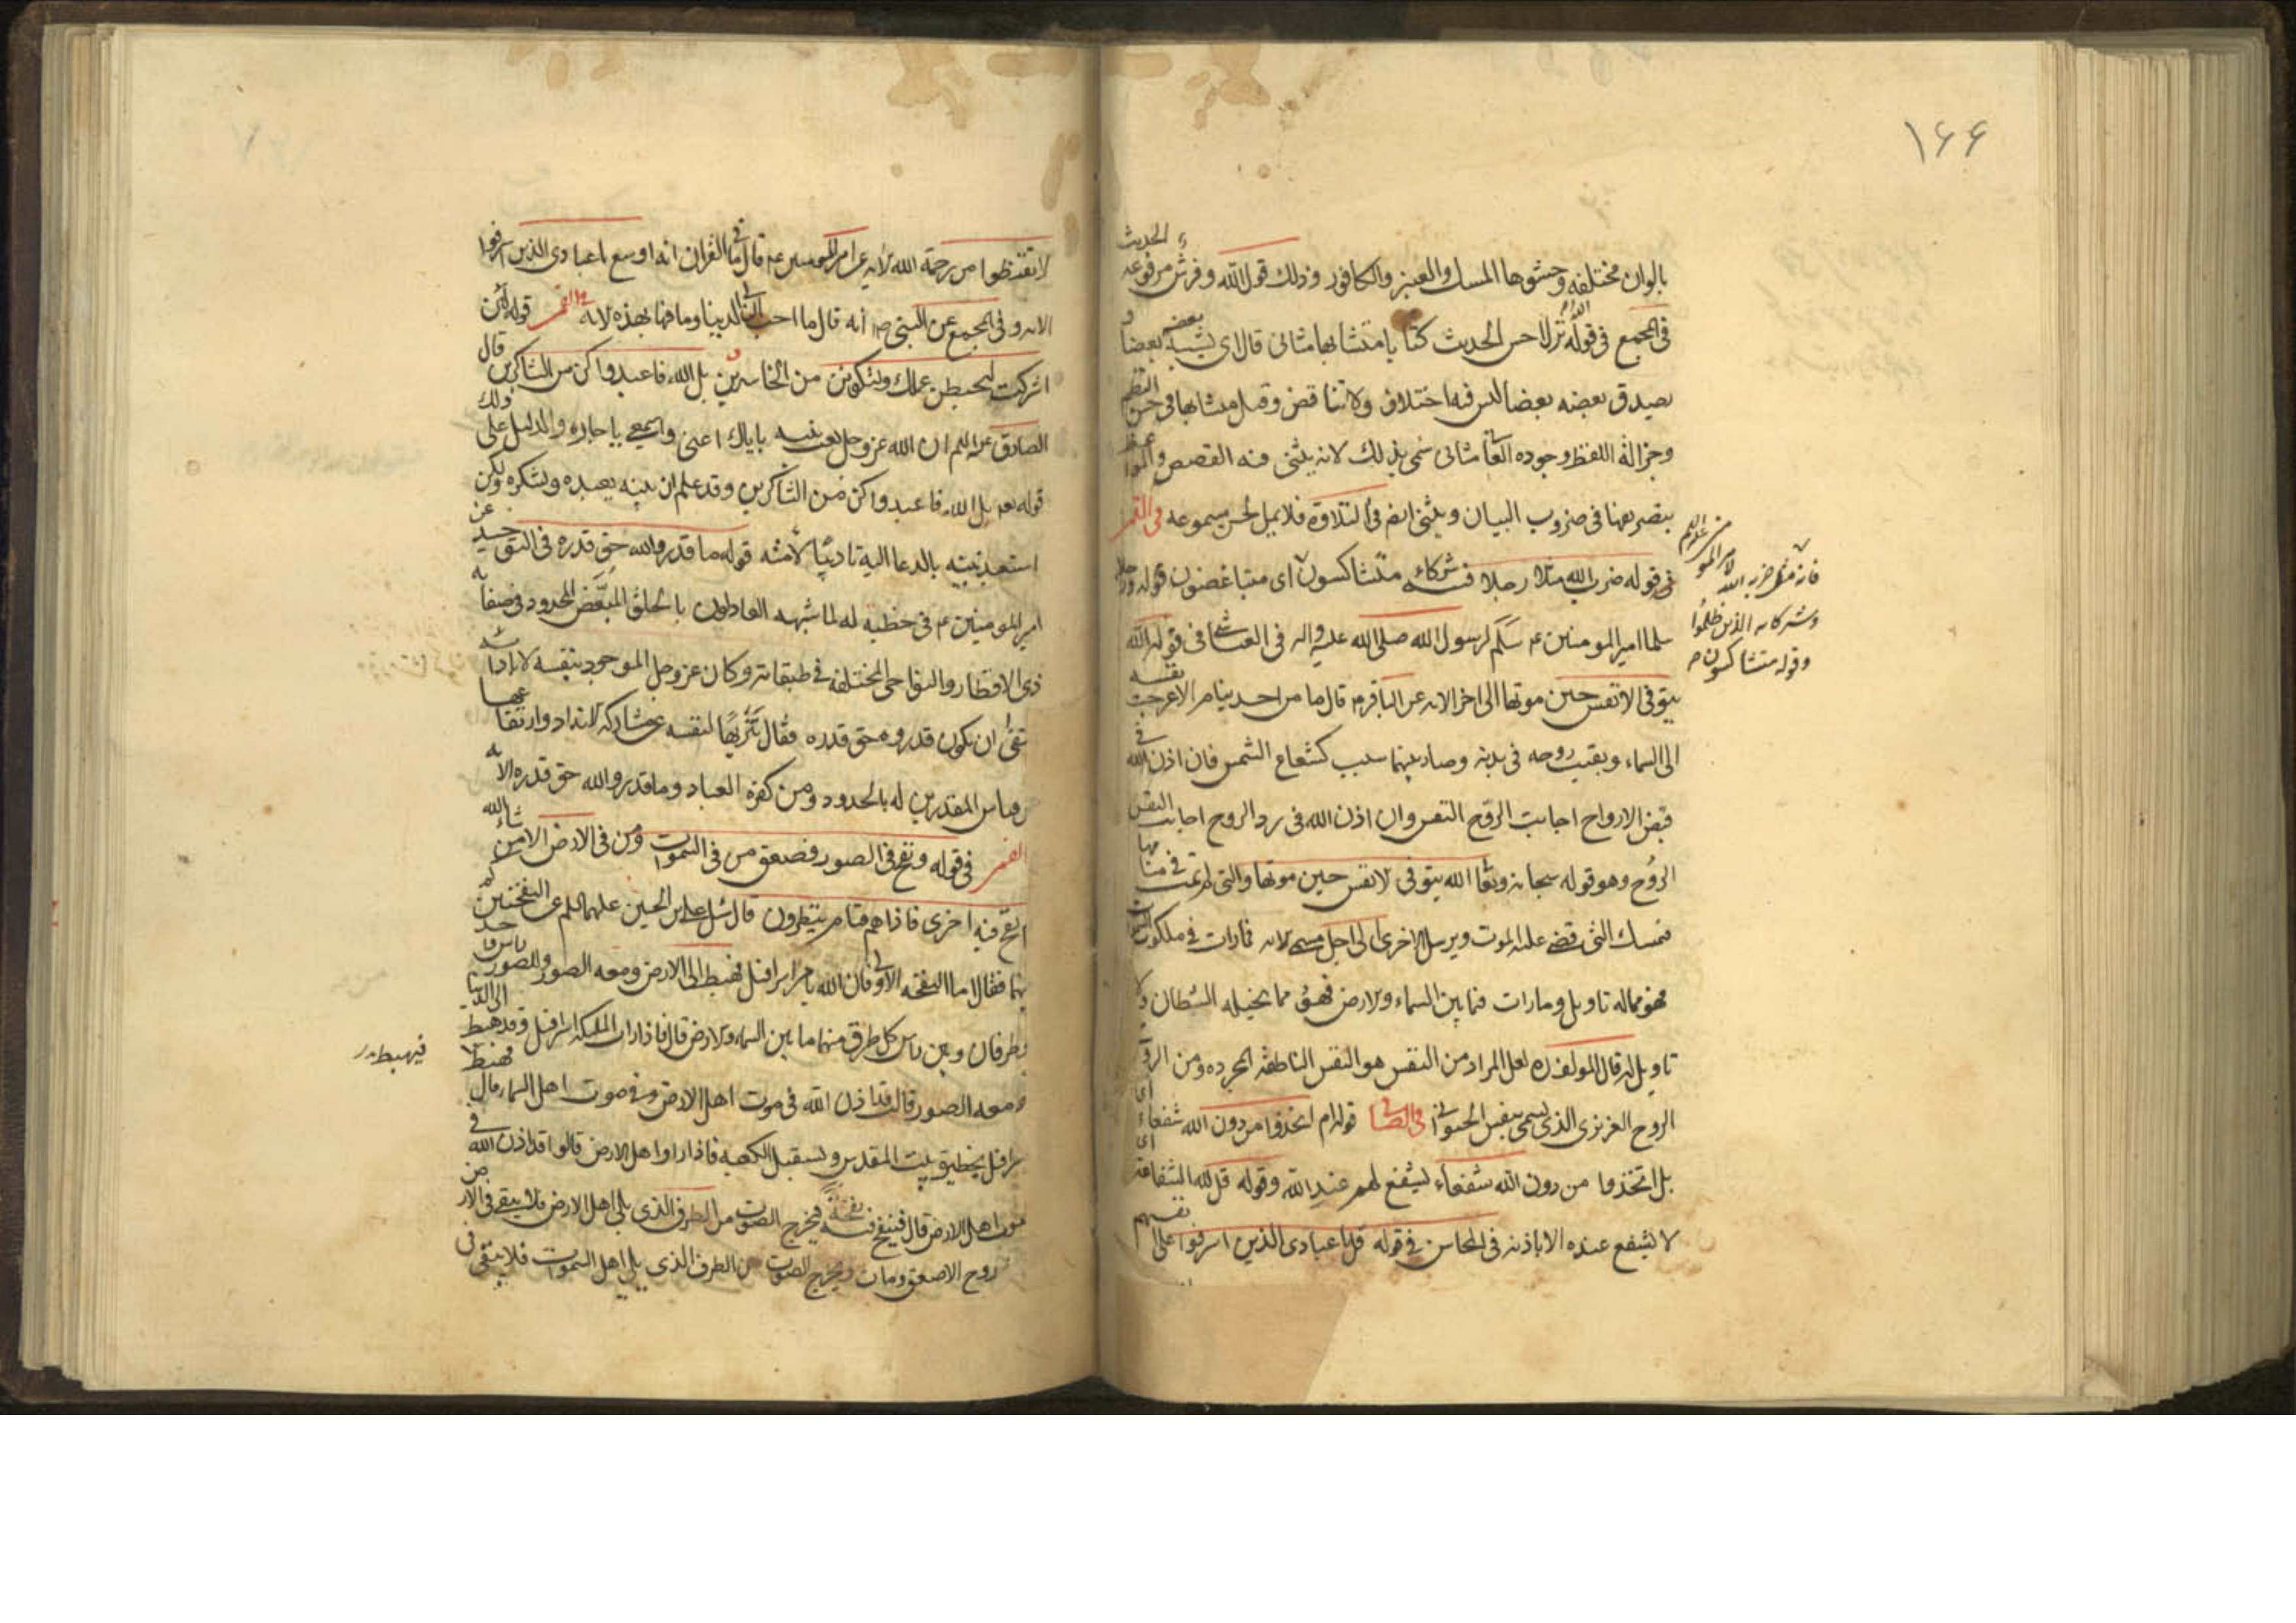 ۱۶۶
بالوان مختلفه وحشوها المسك والعنبر والكافور وذلك قول الله وفرش مرفوعه الحديث
فى المجمع فى قوله الله نزل احسن الحديث كتابا متشابها مثانى قال اى يشبه بعضه بعضا و
يصدق بعضه بعضا ليس فيه اختلاف ولا تناقض وقيل متشابها فى حسن النظم
وجزالة اللفظ وجوده المعانى مثانى سمى بذلك لانه يثنى فيه القصص والمواعظ
بتصريفها فى ضروب البيان ويثنى ايضا فى التلاوة فلا يمل لحسن مسموعه فى القمر
فى قوله ضرب الله مثلا رجلا فيه شركاء متشاكسون اى متباغضون قوله ورجلا
سلما امير المومنين ع سلم لرسول الله صلى الله عليه واله فى العياشى فى قوله الله
يتوفى الانفس حين موتها الى اخر الايه عن الباقر م قال ما من احد ينام الا عرجت نفسه
الى السماء وبقيت روحه فى بدنه وصار بينهما سبب كشعاع الشمس فان اذن الله فى
قبض الارواح اجابت الروح النفس وان اذن الله فى رد الروح اجابت النفس
الروح وهو قوله سبحانه وتعا الله يتوفى الانفس حين موتها والتى لم تمت فى منامها
فيمسك التى قضى عليها الموت ويرسل الاخرى الى اجل مسمى الايه فما رات فى ملكوت السموات
فهو مماله تاويل وما رات فيما بين السماء والارض فهو مما يخيله الشيطان ولا
تاويل له قال المولف ره لعل المراد من النفس هو النفس الناطقه المجرده ومن الروح
الروح الغريزى الذى يسمى بنفس الحيوانى فى الصافى قوله ام اتخذوا من دون الله شفعاء اى
بل اتخذوا من دون الله شفعاء ليشفع لهم عند الله وقوله قل لله الشفاعة اى
لا يشفع عنده الا باذنه فى المحاسن فى قوله قل يا عبادى الذين اسرفوا على انفسهم
فانه مثل ضربه الله لامير المومنين عليه السلم
وشركائه الذين ظلموا
وقوله متشاكسون
لا تقنطوا من رحمة الله الايه عن امير المومنين ع م قال ما فى القران ايه اوسع يا عبادى الذين اسرفوا
الايه وفى المجمع عن النبى ص انه قال ما احب ان لى الدنيا وما فيها بهذه الايه القمر قوله لئن
اشركت ليحبطن عملك ولتكونن من الخاسرين بل الله فاعبد وكن من الشاكرين قال
الصادق عليه السلم ان الله عز وجل بعث نبيه باياك اعنى واسمعى يا جاره والدليل على ذلك
قوله تعه بل الله فاعبد وكن من الشاكرين وقد علم ان نبيه يعبده ويشكره ولكن
استعبد نبيه بالدعا اليه تاديبا لامته قوله ما قدروا الله حق قدره فى التوحيد عن
امير المومنين ع فى خطبة له لما شبهه العادلون بالخلق المبعض المحدود فى صفاته
ذى الاقطار والنواحى المختلفه فى طبقاته وكان عز وجل الموجود بنفسه لا باداته
انتفى ان يكون قدروه حق قدره فقال تنزيها لنفسه عن مشاركة الانداد وارتفاعها
عن قياس المقدرين له بالحدود ومن كفرة العباد وما قدروا الله حق قدره الايه
القمر فى قوله ونفخ فى الصور فصعق من فى السموات ومن فى الارض الا من شاء الله
ثم نفخ فيه اخرى فاذاهم قيام ينظرون قال سئل على بن الحسين عليهما السلم عن النفختين
بينهما فقال اما النفخه الاولى فان الله يامر اسرافيل فيهبط الى الارض ومعه الصور وللصور راس واحد
وطرفان وبين راس كل طرف منهما ما بين السماء والارض قال فاذا رات الملئكه اسرافيل وقد هبط الى الدنيا
ومعه الصور قالت قد اذن الله فى موت اهل الارض وفى موت اهل السماء قال فهبط
اسرافيل بحظيرة بيت المقدس ويستقبل الكعبه فاذا راوا اهل الارض قالوا قد اذن الله فى
موت اهل الارض قال فينفخ فيه نفخة فيخرج الصوت من الطرف الذى يلى اهل الارض فلا يبقى فى الارض
روح الا صعق ومات ويخرج الصوت من الطرف الذى يلى اهل السموات فلا يبقى فى
فيهبط